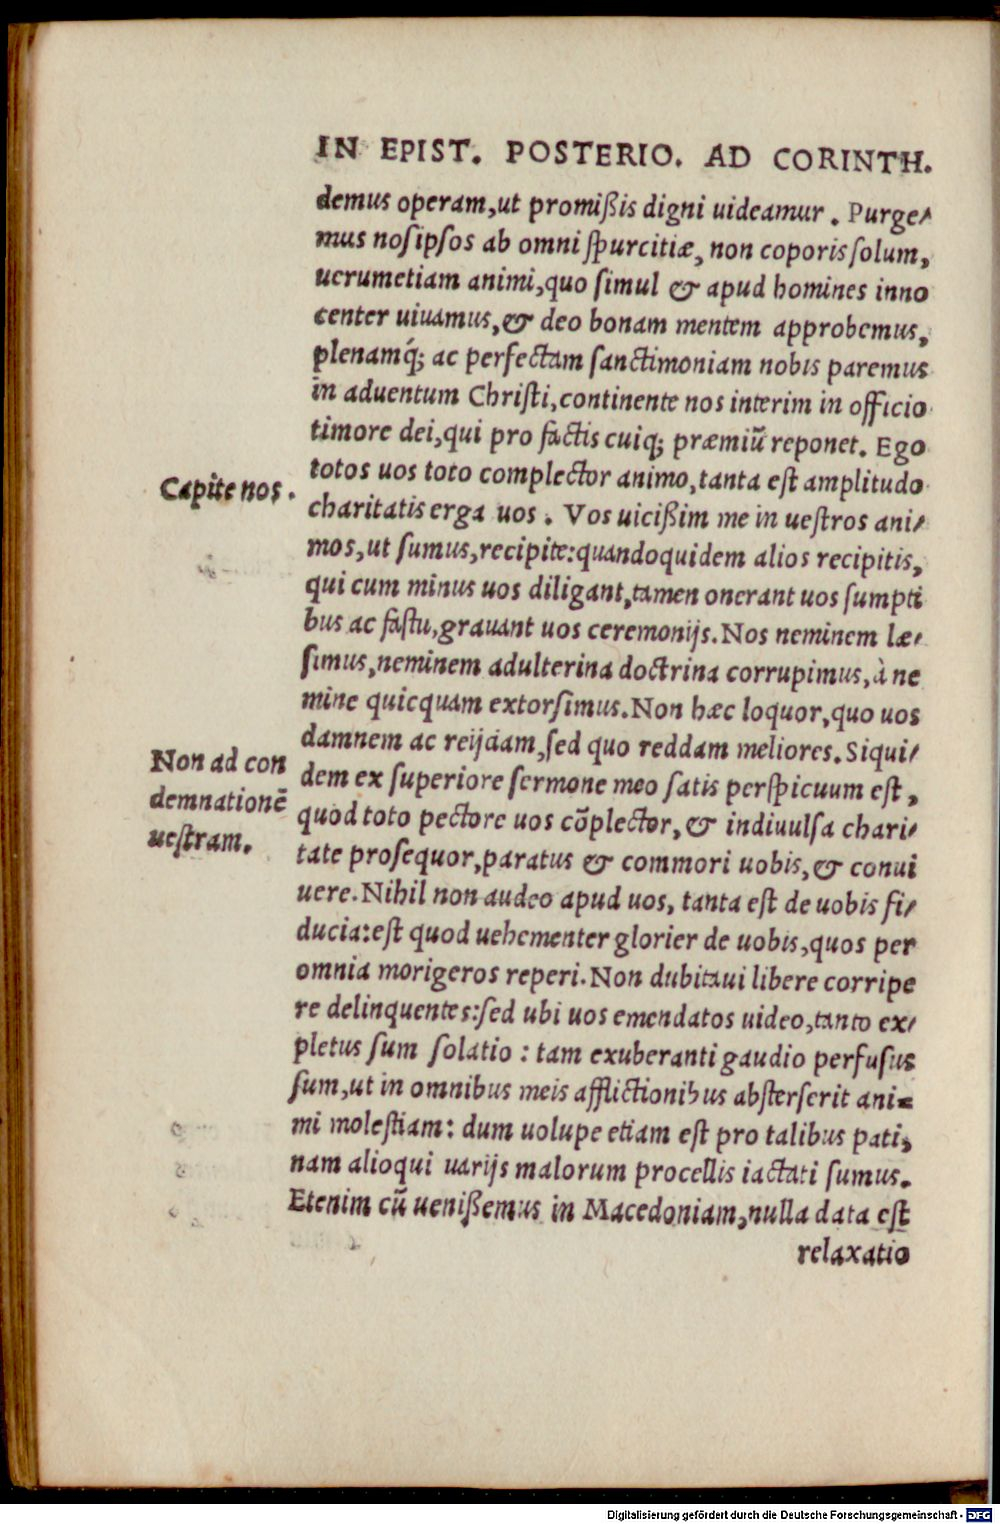 IN EPIST. POSTERIO. AD CORINTH.
demus operam, ut promißis digni uideamur. Purge⸗
mus nosipsos ab omni spurcitiæ, non coporis solum,
uerumetiam animi, quo simul & apud homines inno
center uiuamus, & deo bonam mentem approbemus,
plenamq́; ac perfectam sanctimoniam nobis paremus
in aduentum Christi, continente nos interim in officio
timore dei, qui pro factis cuiq; præmiũ reponet. Ego
Capite nos.
totos uos toto complector animo, tanta est amplitudo
charitatis erga uos. Vos uicißim me in uestros ani⸗
mos, ut sumus, recipite: quandoquidem alios recipitis,
qui cum minus uos diligant, tamen onerant uos sumpti
bus ac fastu, grauant uos ceremonijs. Nos neminem læ⸗
simus, neminem adulterina doctrina corrupimus, à ne
mine quicquam extorsimus. Non hæc loquor, quo uos
damnem ac reijciam, sed quo reddam meliores. Siqui⸗
Non ad con
demnationẽ
uestram.
dem ex superiore sermone meo satis perspicuum est,
quod toto pectore uos cõplector, & indiuulsa chari⸗
tate prosequor, paratus & commori uobis, & conui
uere. Nihil non audeo apud uos, tanta est de uobis fi⸗
ducia: est quod uehementer glorier de uobis, quos per
omnia morigeros reperi. Non dubitaui libere corripe
re delinquentes: sed ubi uos emendatos uideo, tanto ex⸗
pletus sum solatio: tam exuberanti gaudio perfusus
sum, ut in omnibus meis afflictionibus absterserit ani⸗
mi molestiam: dum uolupe etiam est pro talibus pati,
nam alioqui uarijs malorum procellis iactati sumus.
Etenim cũ uenißemus in Macedoniam, nulla data est
relaxatio
Digitalisierung gefördert durch die Deutsche Forschungsgemeinschaft - DFG